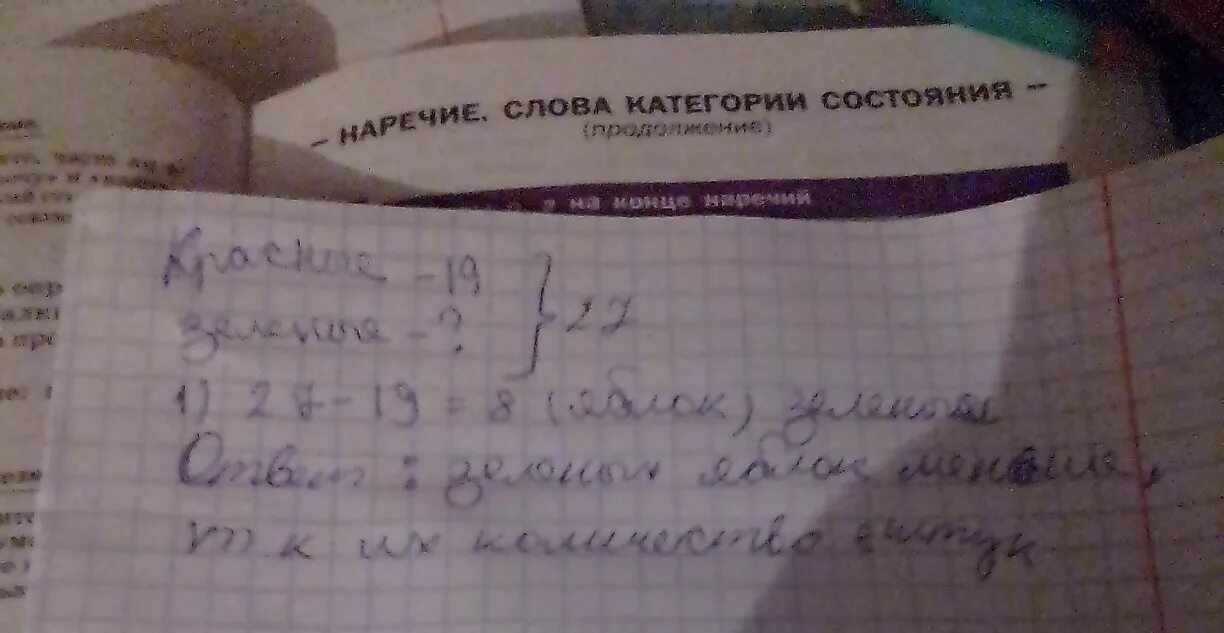 – НАРЕЧИЕ. СЛОВА КАТЕГОРИИ СОСТОЯНИЯ –
(продолжение)
на конце наречий
Красные – 19
зеленые – ?
} 27
1) 27 – 19 = 8 (яблок) зеленые
Ответ: зеленых яблок меньше,
т к их количество 8 штук